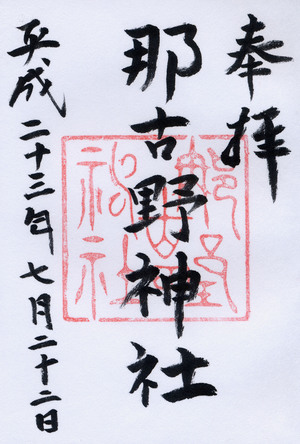 奉拝
那古野神社
平成二十三年七月二十二日